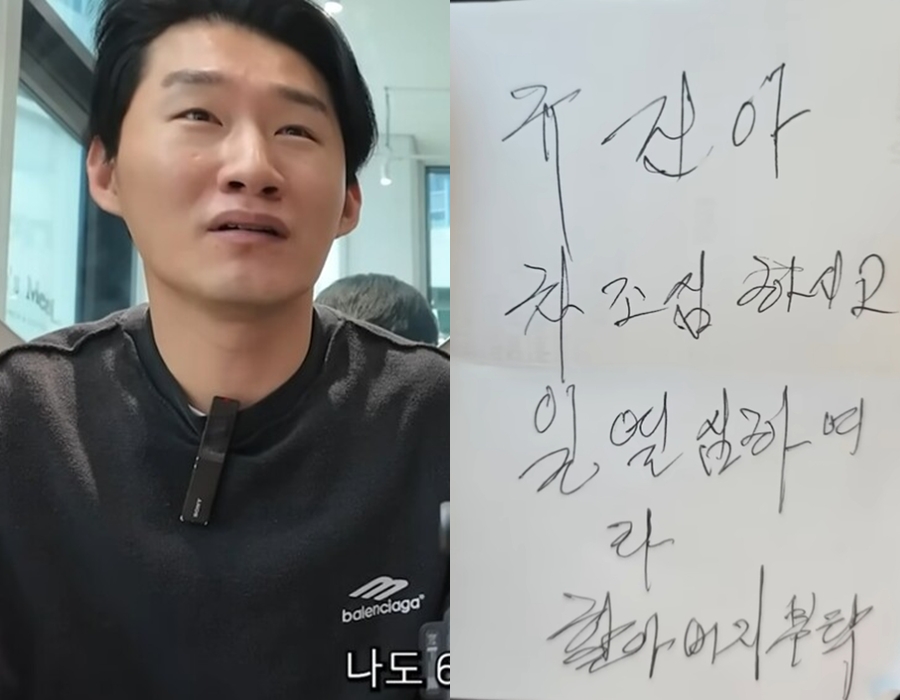 나도 6
balenciaga
SONY
규진아
차 조심 하시고
일 열심하여
라
할아버지 부탁